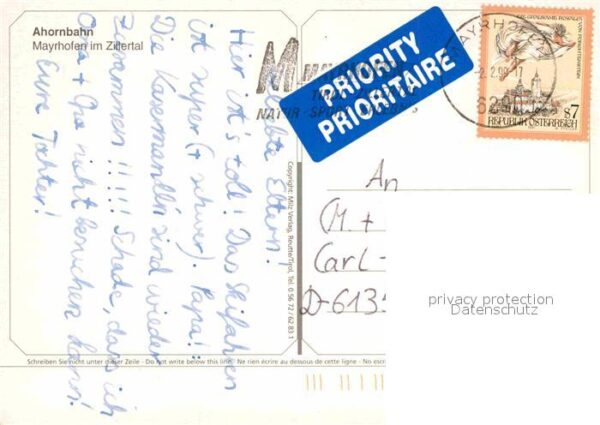 Ahornbahn
Mayrhofen im Zillertal
Eltern!
Hier ist's toll! Das Skifahren
ist super (+ schwer). Papa!:
Die sind wieder
zusammen!!!!! Schade, dass ich
Oma + Opa nicht besuchen kann!
Eure Tochter!
Copyright: Milz Verlag, Reutte/Tirol, Tel. 0 56 72 / 62 83 1
PRIORITY
PRIORITAIRE
M
NATUR · SPORT
MAYRH
-2.2.99-17
629
REPUBLIK ÖSTERREICH
S7
An
(M +
Carl-
D-6135
privacy protection
Datenschutz
Schreiben Sie nicht unter dieser Zeile - Do not write below this line - Ne rien écrire au dessous de cette ligne - No escr